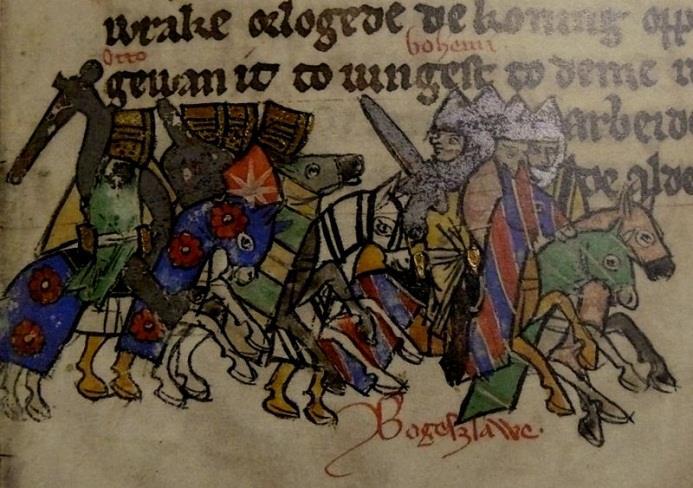 wrake orlogede de koning opp
Otto bohemi
gewan it to ungest to deme
arbeide
alde
Bogeszlawe.